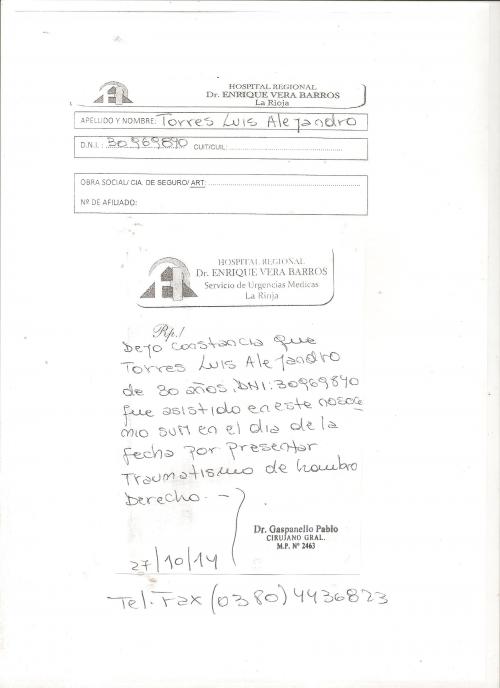 HOSPITAL REGIONAL
Dr. ENRIQUE VERA BARROS
La Rioja
APELLIDO Y NOMBRE: Torres Luis Alejandro
D.N.I.: 30969840 CUIT/CUIL:
OBRA SOCIAL/ CIA. DE SEGURO/ ART:
Nº DE AFILIADO:
HOSPITAL REGIONAL
Dr. ENRIQUE VERA BARROS
Servicio de Urgencias Medicas
La Rioja
Rp./
Dejo constancia que
Torres Luis Alejandro
de 30 años. DNI: 30969840
fue asistido en este nosoco
mio SUM en el dia de la
fecha por presentar
Traumatismo de hombro
Derecho. -
Dr. Gaspanello Pablo
CIRUJANO GRAL.
M.P. Nº 2463
27/10/14
Tel. Fax (0380) 4436823